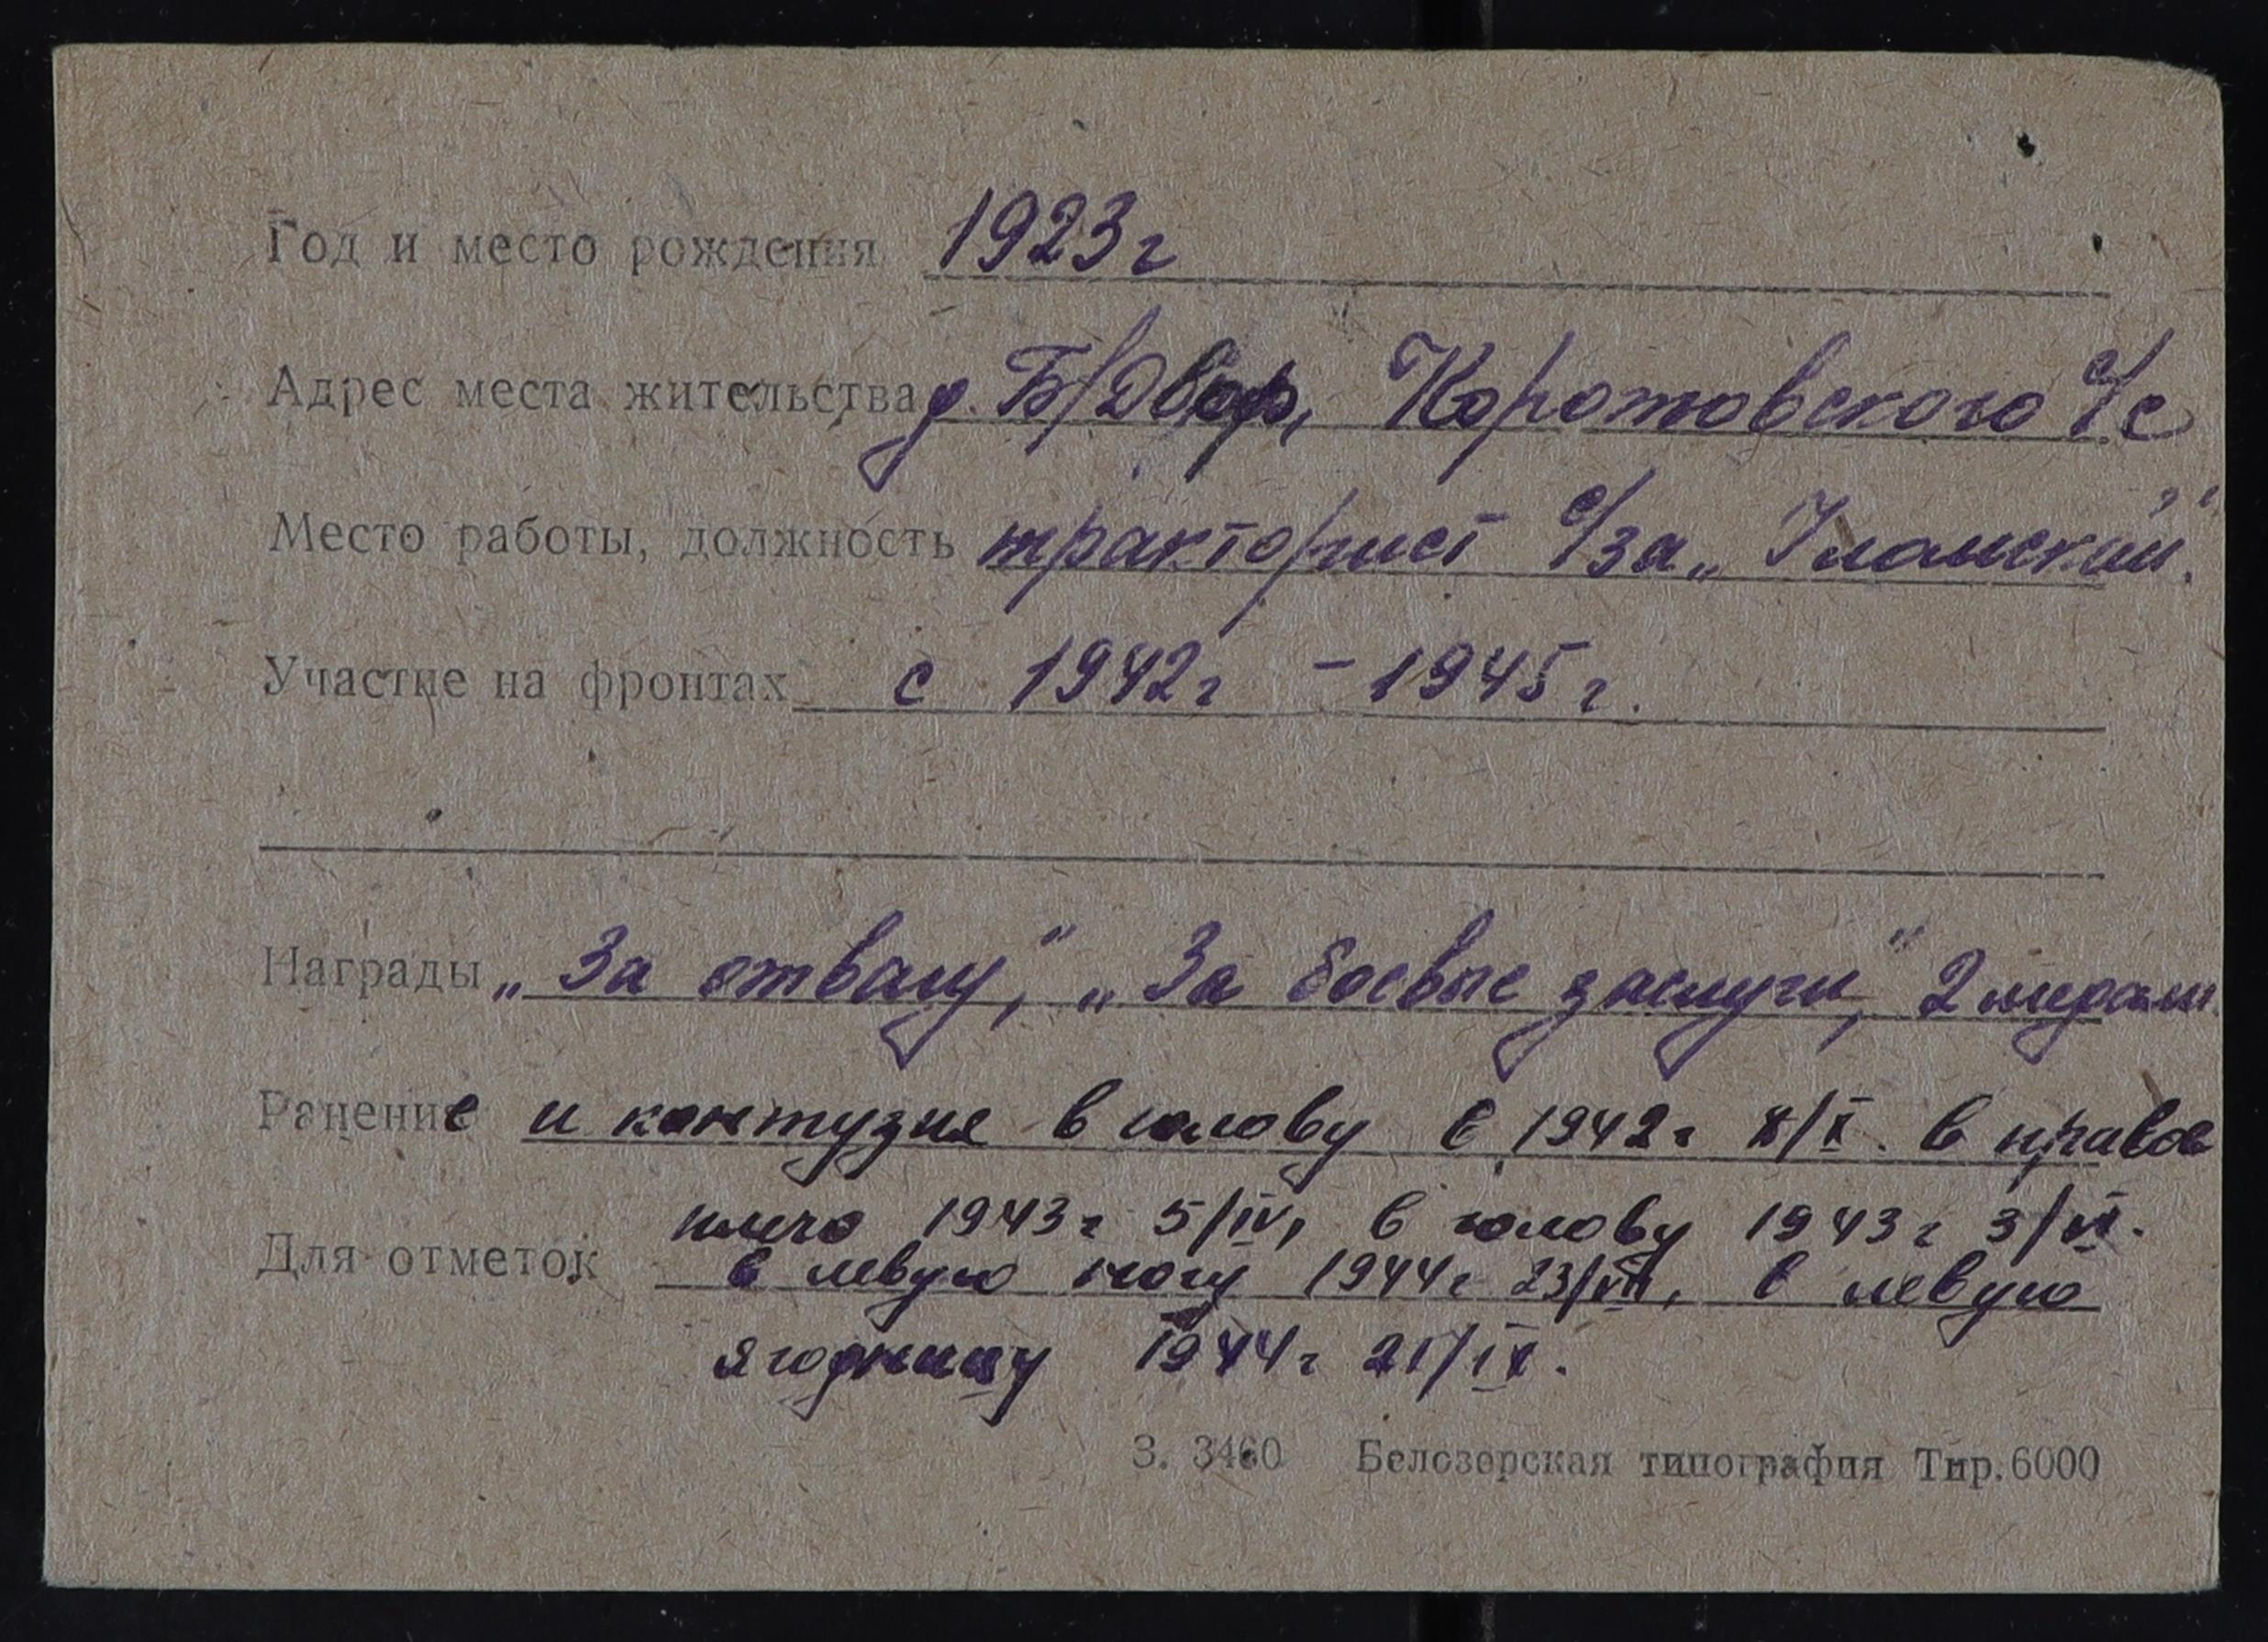 Год и место рождения 1923г
Адрес места жительства д. Б/Двор, Коротовского с/с
Место работы, должность тракторист с/за „Уломский".
Участие на фронтах с 1942г - 1945г.
Награды „За отвагу", „За боевые заслуги", 2 медали
Ранение и контузия в голову в 1942г /X. в правое
плечо 1943г 5/IV, в голову 1943г 3/VI.
Для отметок в левую ногу 1944г 23/VII, в левую
ягодницу 1944г 21/IX.
З. 3460 Белозерская типография Тир. 6000